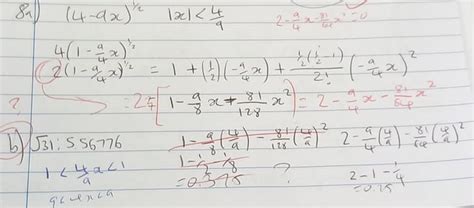 8a) (4-9x)^½ |x|<4/9 2-9/4x-81/64x²=0
4(1-9/4x)^½
2(1-9/4x)^½ = 1+(½)(-9/4x)+½(½-1)/2!(-9/4x)²
? =2[1-9/8x-81/128x²]=2-9/4x-81/64x²
b) √31: 5.56776 1-9/8(4/9)-81/128(4/9)² 2-9/4(4/9)-81/64(4/9)²
1<4/9<1 1-½-⅛ ? 2-1-¼
=0.375 =0.75